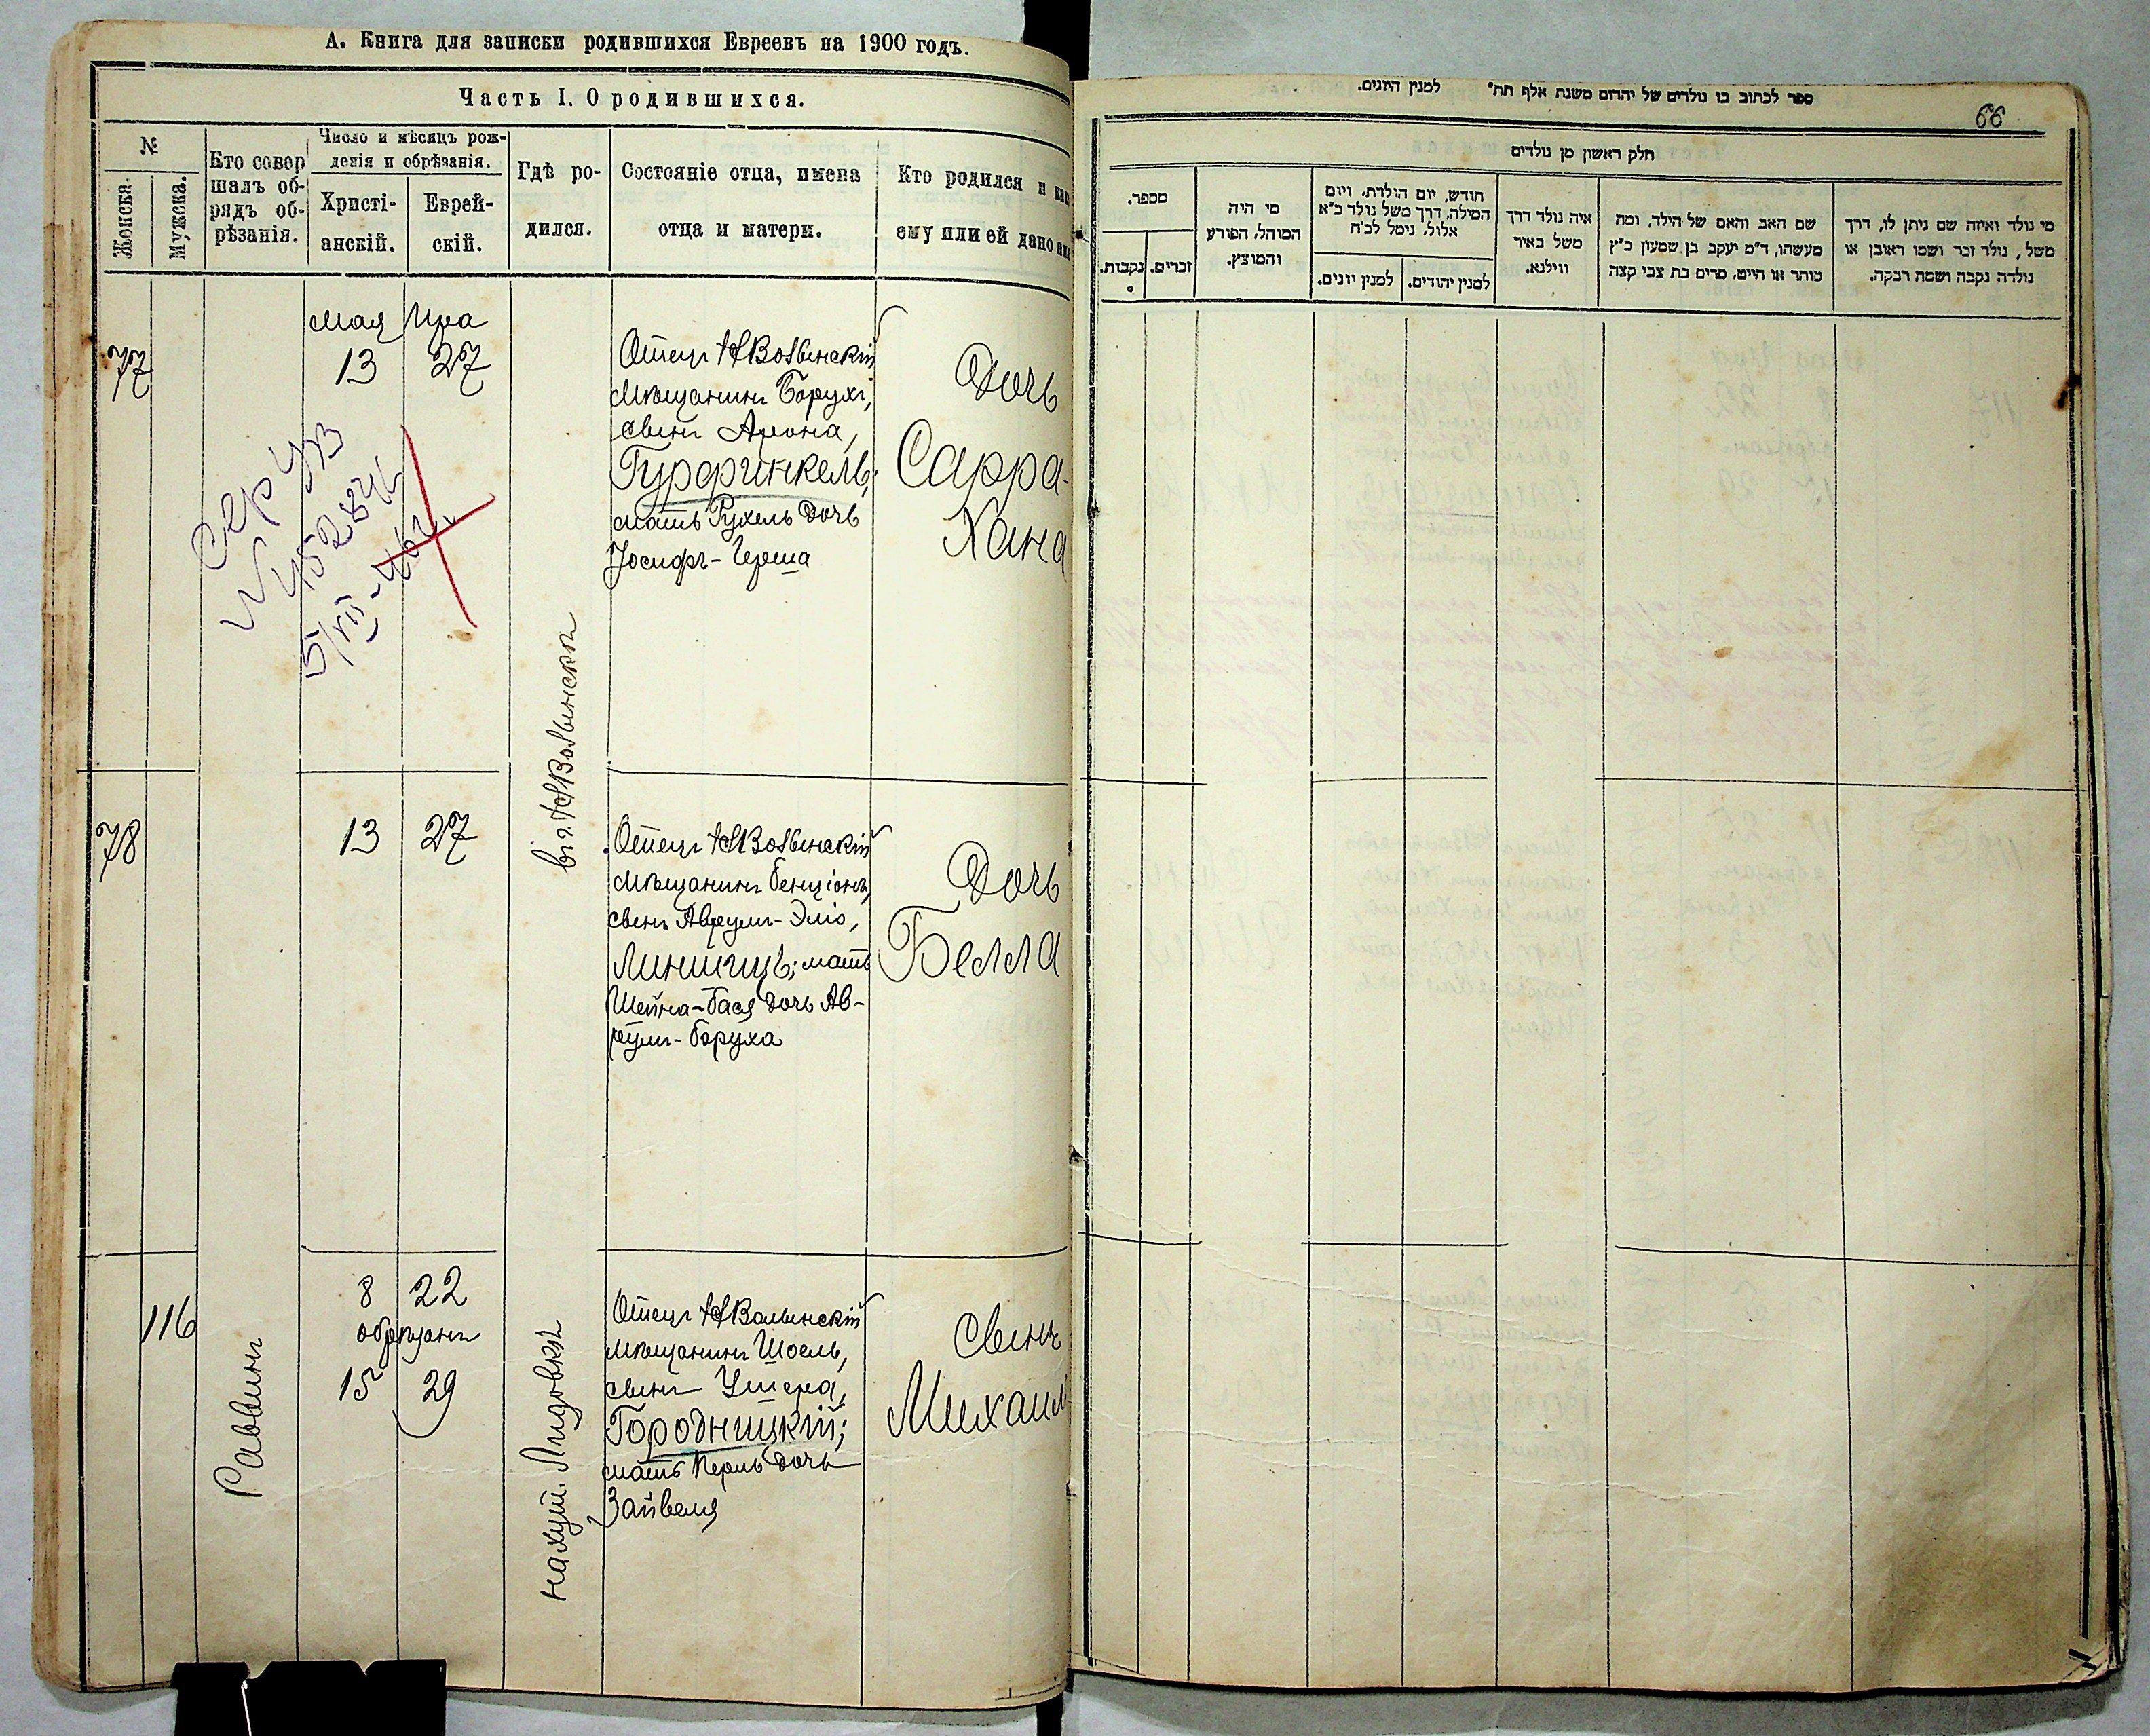 А. Книга для записки родившихся Евреевъ на 1900 годъ.
Часть I. О родившихся.
№
Женска.
Мужска.
Кто совер
шалъ об-
рядъ об-
рѣзанія.
Число и мѣсяцъ рож-
денія и обрѣзанія.
Христі-
анскій.
Еврей-
скій.
Гдѣ ро-
дился.
Состояніе отца, имена
отца и матери.
Кто родился и
ему или ей дано
77
мая
13
27
Отецъ НВолынскій
мѣщанинъ Борухъ,
сынъ Арона,
Гурфинкель,
мать Рухель дочь
Іосифъ-Герша
Дочь
Сарра-
Хана
в г. НВолынскѣ
78
13
27
Отецъ НВолынскій
мѣщанинъ Бенціонъ,
сынъ
мать
Шейна-Бася дочь Ав-
румъ-Боруха
Дочь
Белла
116
Раввинъ
8
22
обрѣзанъ
15
29
Отецъ НВолынскій
мѣщанинъ Шоель,
сынъ Ушера,
Городницкій;
мать Перль дочь
Зайвеля
Сынъ
Михаил
66
ספר לכתוב בו נולדים של יהדום משנת אלף תת״ למנין היונים.
חלק ראשון מן נולדים
מספר.
נקבות.
זכרים.
מי היה
המוהל, הפורע
והמוצץ.
חודש, יום הולדת, ויום
המילה, דרך משל נולד כ״א
אלול, נימל לכ״ח
למנין יונים.
למנין יהודים.
איה נולד דרך
משל באיר
ווילנא.
שם האב והאם של הילד, ומה
מעשהו, ד״מ יעקב בן שמעון כ״ץ
סוחר או חייט, מרים בת צבי קצה
מי נולד ואיזה שם ניתן לו, דרך
משל, נולד זכר ושמו ראובן או
נולדה נקבה ושמה רבקה.